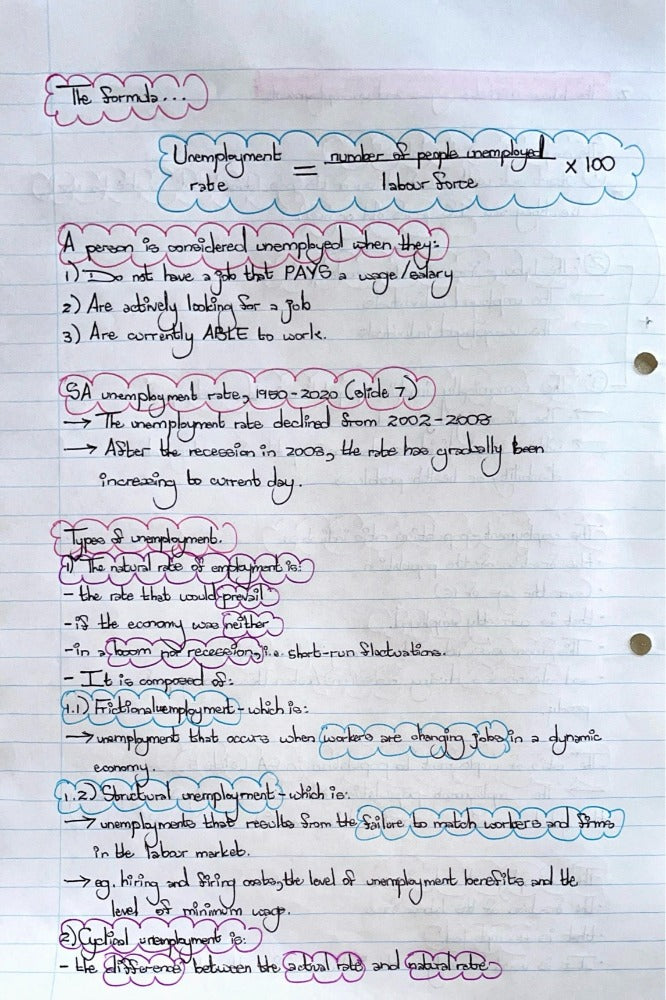 The formula...
Unemployment rate = number of people unemployed / labour force × 100
A person is considered unemployed when they:
1) Do not have a job that PAYS a wage/salary
2) Are actively looking for a job
3) Are currently ABLE to work.
SA unemployment rate, 1980-2020 (slide 7)
→ The unemployment rate declined from 2002-2008
→ After the recession in 2008, the rate has gradually been
increasing to current day.
Types of unemployment.
1) The natural rate of employment is:
- the rate that would prevail
- if the economy was neither
- in a boom nor recession, i.e. short-run fluctuations.
- It is composed of:
1.1) Frictional uemployment - which is:
→ unemployment that occurs when workers are changing jobs in a dynamic
economy.
1.2) Structural unemployment - which is:
→ unemployments that results from the failure to match workers and firms
in the labour market.
→ eg. hiring and firing costs, the level of unemployment benefits and the
level of minimum wage.
2) Cyclical unemployment is:
- the difference between the actual rate and natural rate